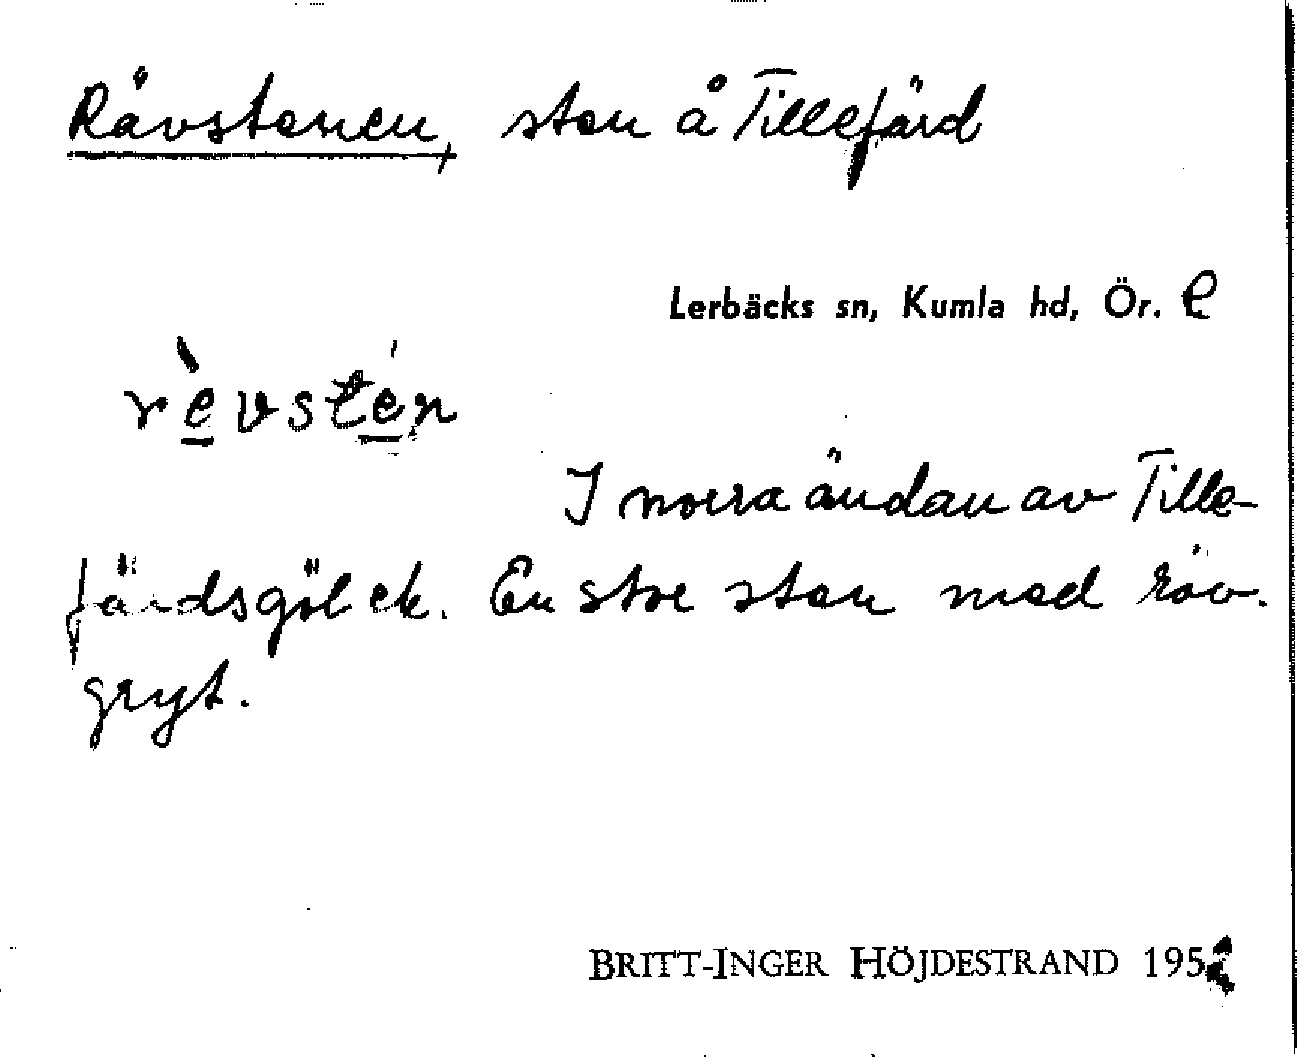 Rävstenen, sten å Tillefärd
Lerbäcks sn, Kumla hd, Ör. l
rèvstén
I norra ändan av Tille-
färdsgölek. En stor sten med räv-
gryt.
BRITT-INGER HÖJDESTRAND 195